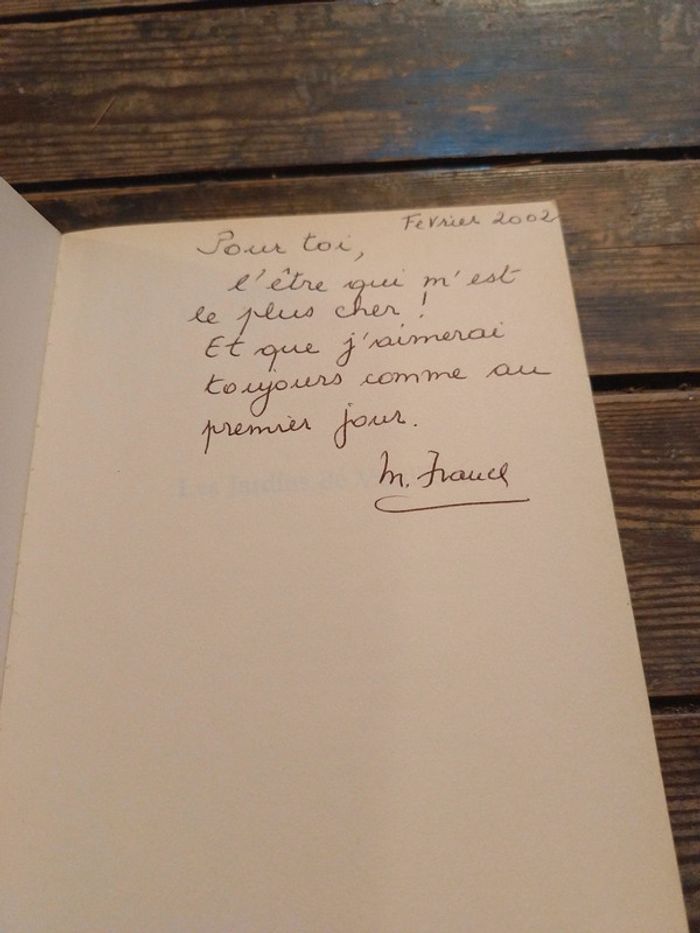 Février 2002
Pour toi,
l'être qui m'est
le plus cher !
Et que j'aimerai
toujours comme au
premier jour.
M. France
Les Jardins de